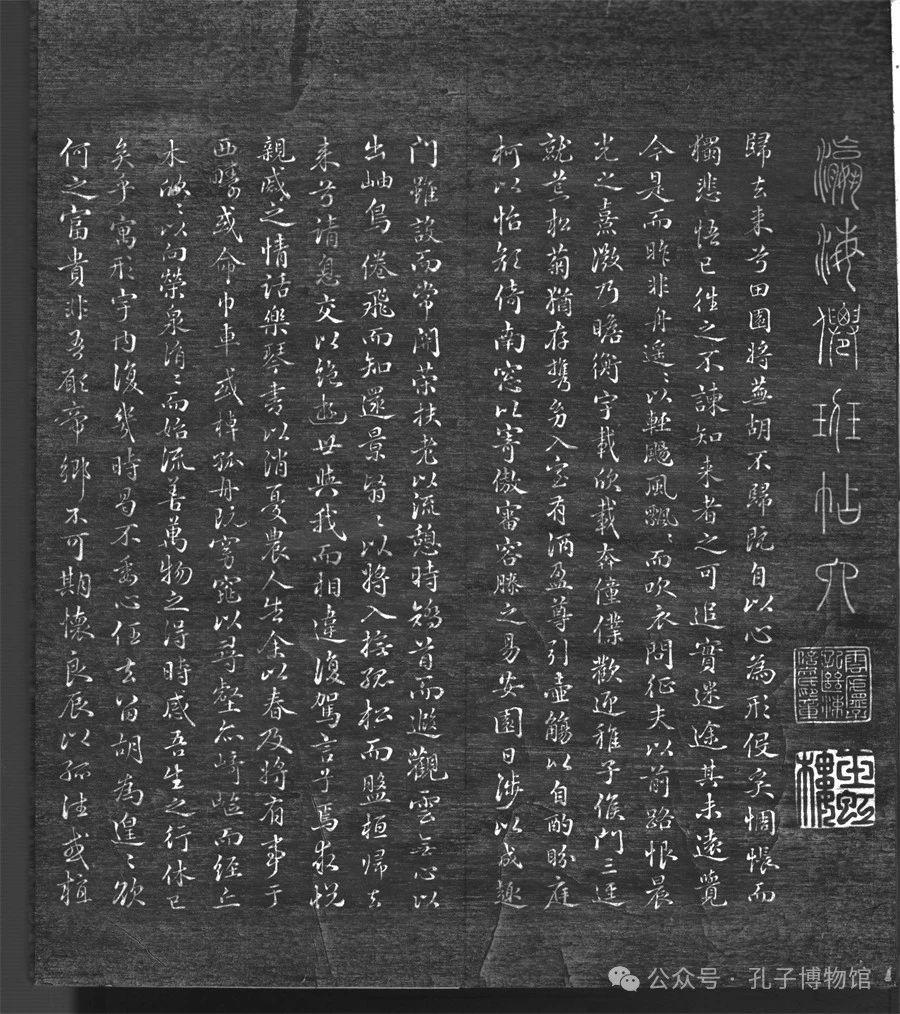 瀛海僊班帖六
玉虹樓
歸去来兮田園將蕪胡不歸既自以心為形役矣惆悵而
獨悲悟已往之不諫知来者之可追實迷途其未遠覺
今是而昨非舟遥〻以輕颺風飄〻而吹衣問征夫以前路恨晨
光之熹微乃瞻衡宇載欣載奔僮僕歡迎稚子候門三逕
就荒松菊猶存携幼入室有酒盈尊引壺觴以自酌眄庭
柯以怡顏倚南窓以寄傲審容膝之易安園日涉以成趣
門雖設而常關策扶老以流憩時矯首而遐觀雲無心以
出岫鳥倦飛而知還景翳〻以將入撫孤松而盤桓歸去
来兮請息交以絶遊世與我而相違復駕言兮焉求悅
親戚之情話樂琴書以消憂農人告余以春及將有事于
西疇或命巾車或棹孤舟既窈窕以尋壑亦崎嶇而經丘
木欣〻以向榮泉涓〻而始流善萬物之得時感吾生之行休已
矣乎寓形宇内復幾時曷不委心任去留胡為遑〻欲
何之富貴非吾願帝鄉不可期懷良辰以孤往或植
公众号·孔子博物馆